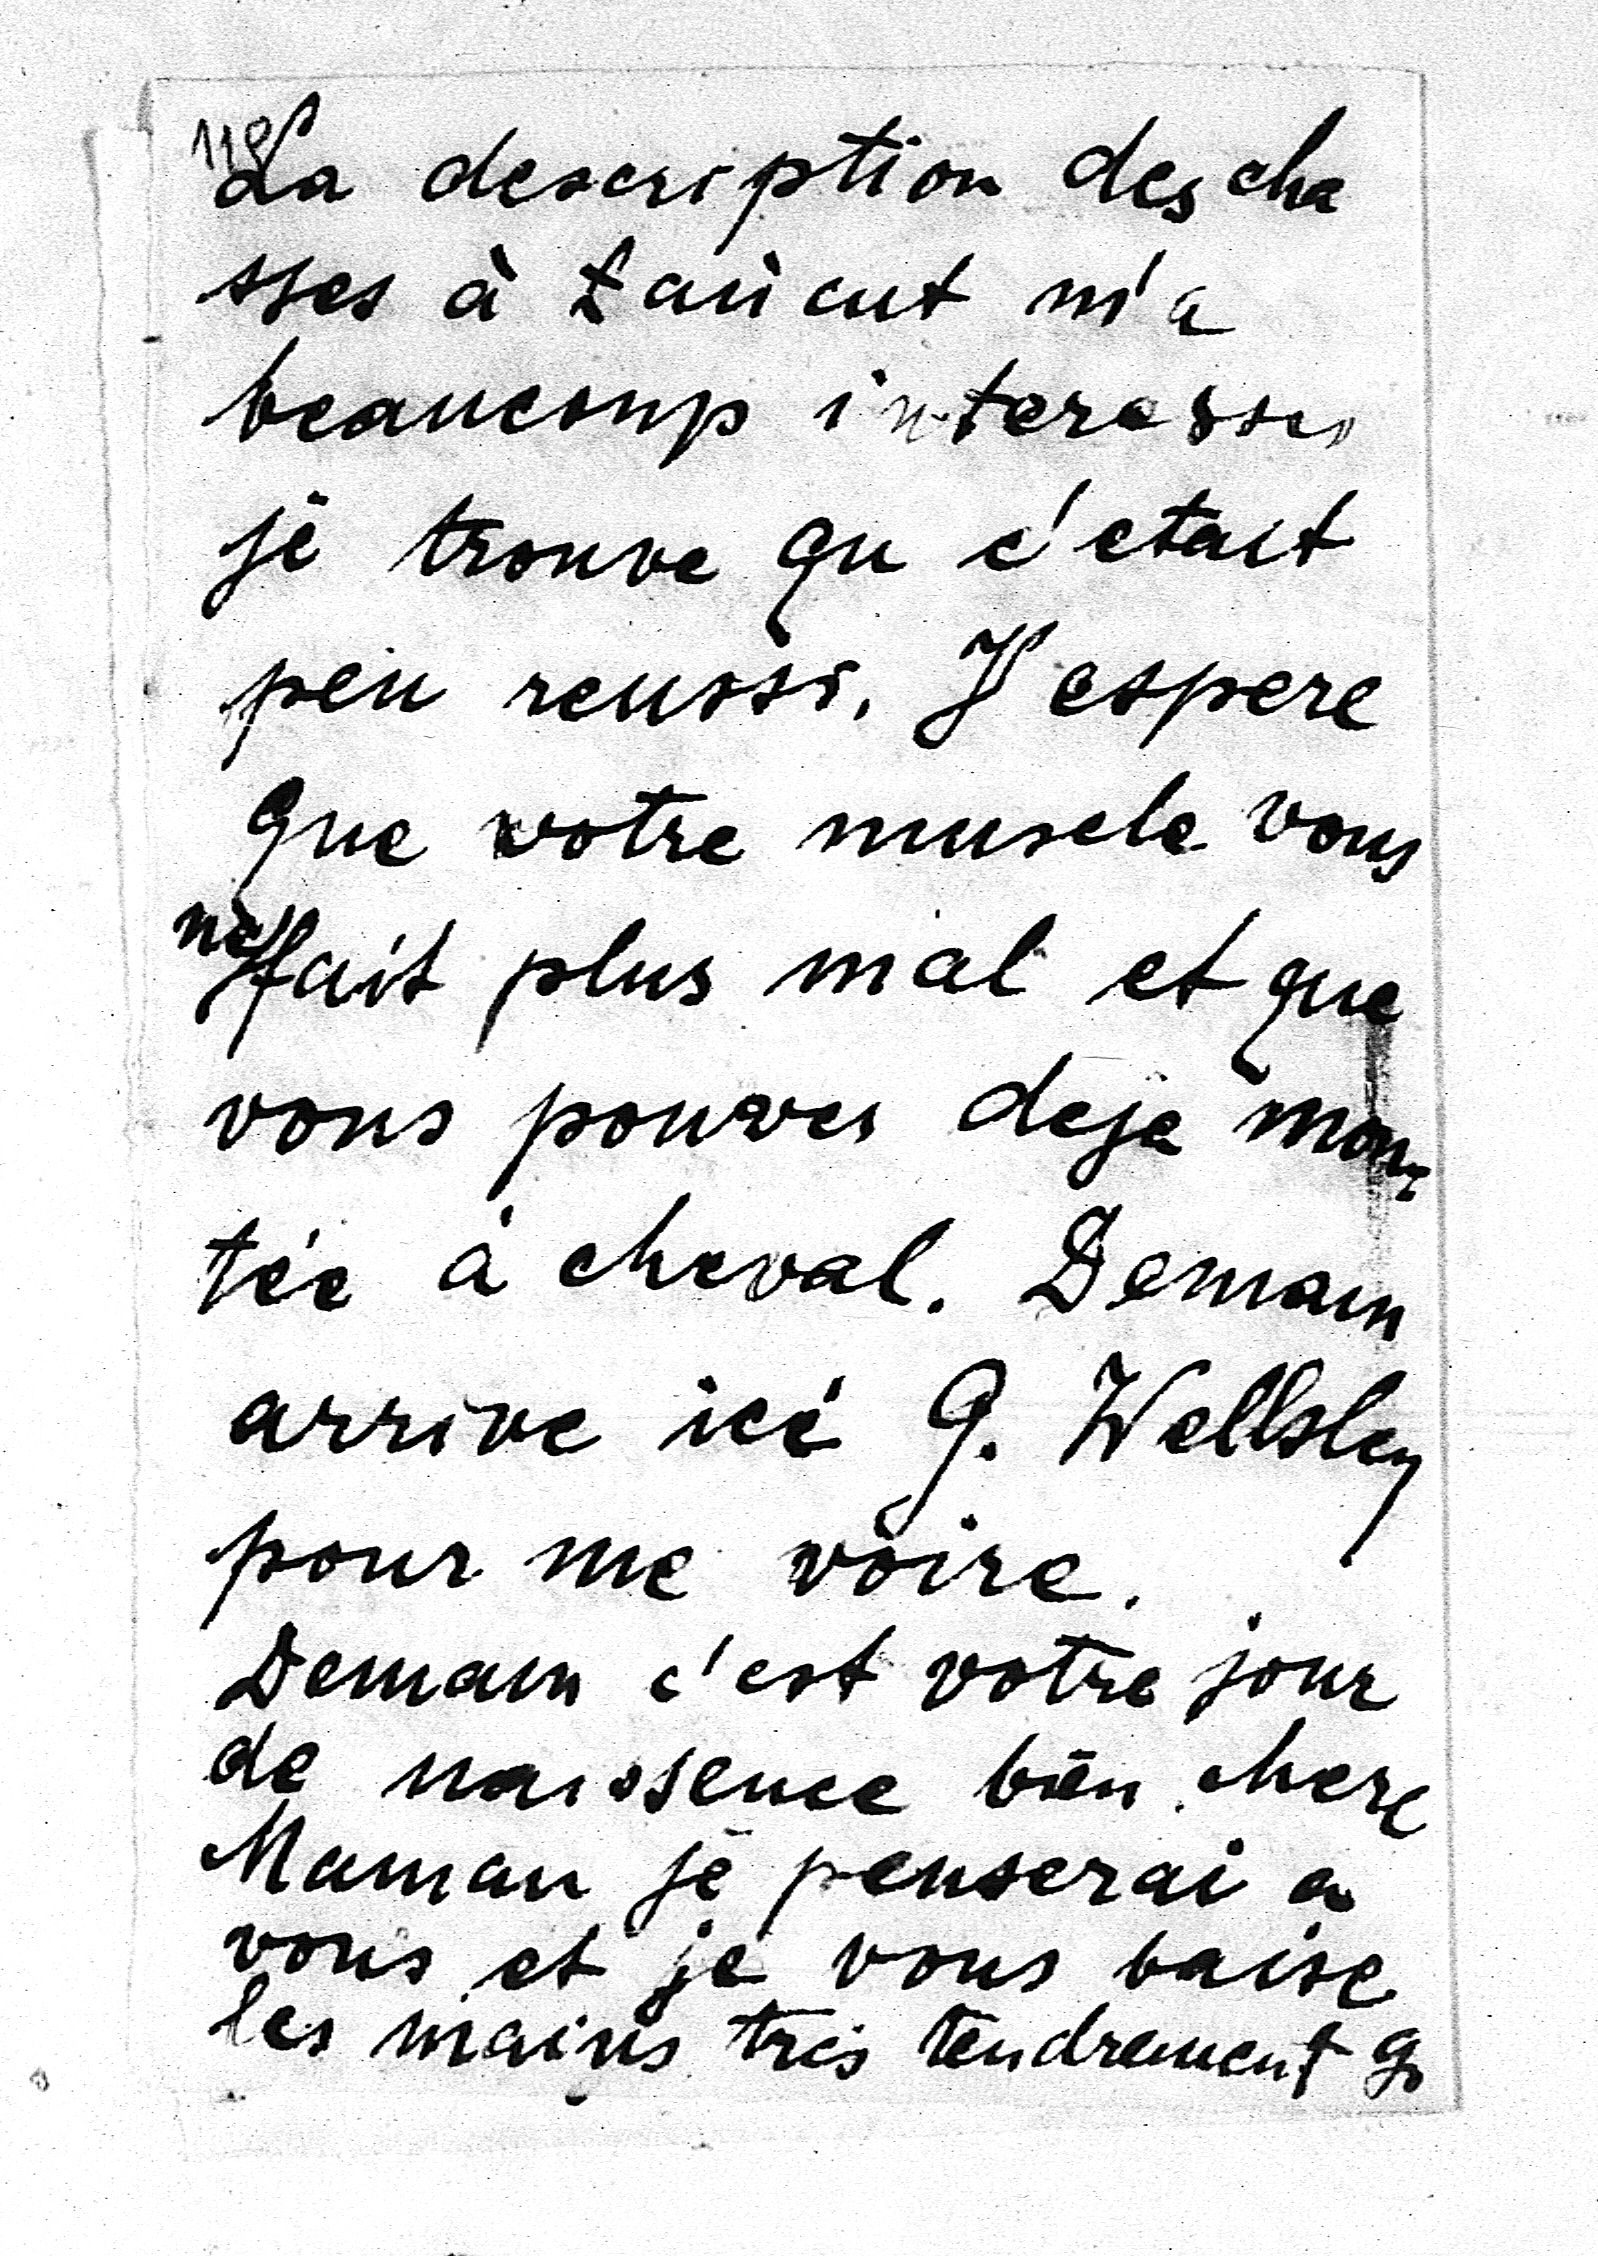 118
La description des cha
sses à Łańcut m'a
beaucoup interesse,
je trouve qu c'etait
peu reussi. J'espere
que votre muscle vous
ne fait plus mal et que
vous pouves deja mon-
tée à cheval. Demain
arrive ici G. Wellsley
pour me voire.
Demain c'est votre jour
de naissence bien chere
Maman je penserai a
vous et je vous baise
les mains très tendrement G.